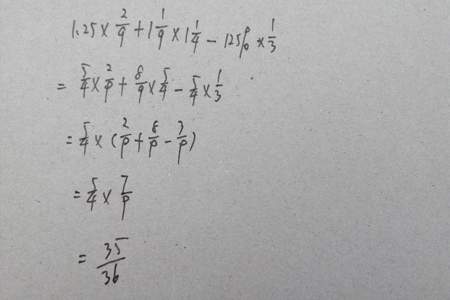 1.25×2/9+1 1/9×1 1/4-125%×1/3
=5/4×2/9+8/9×5/4-5/4×1/3
=5/4×(2/9+8/9-3/9)
=5/4×7/9
=35/36